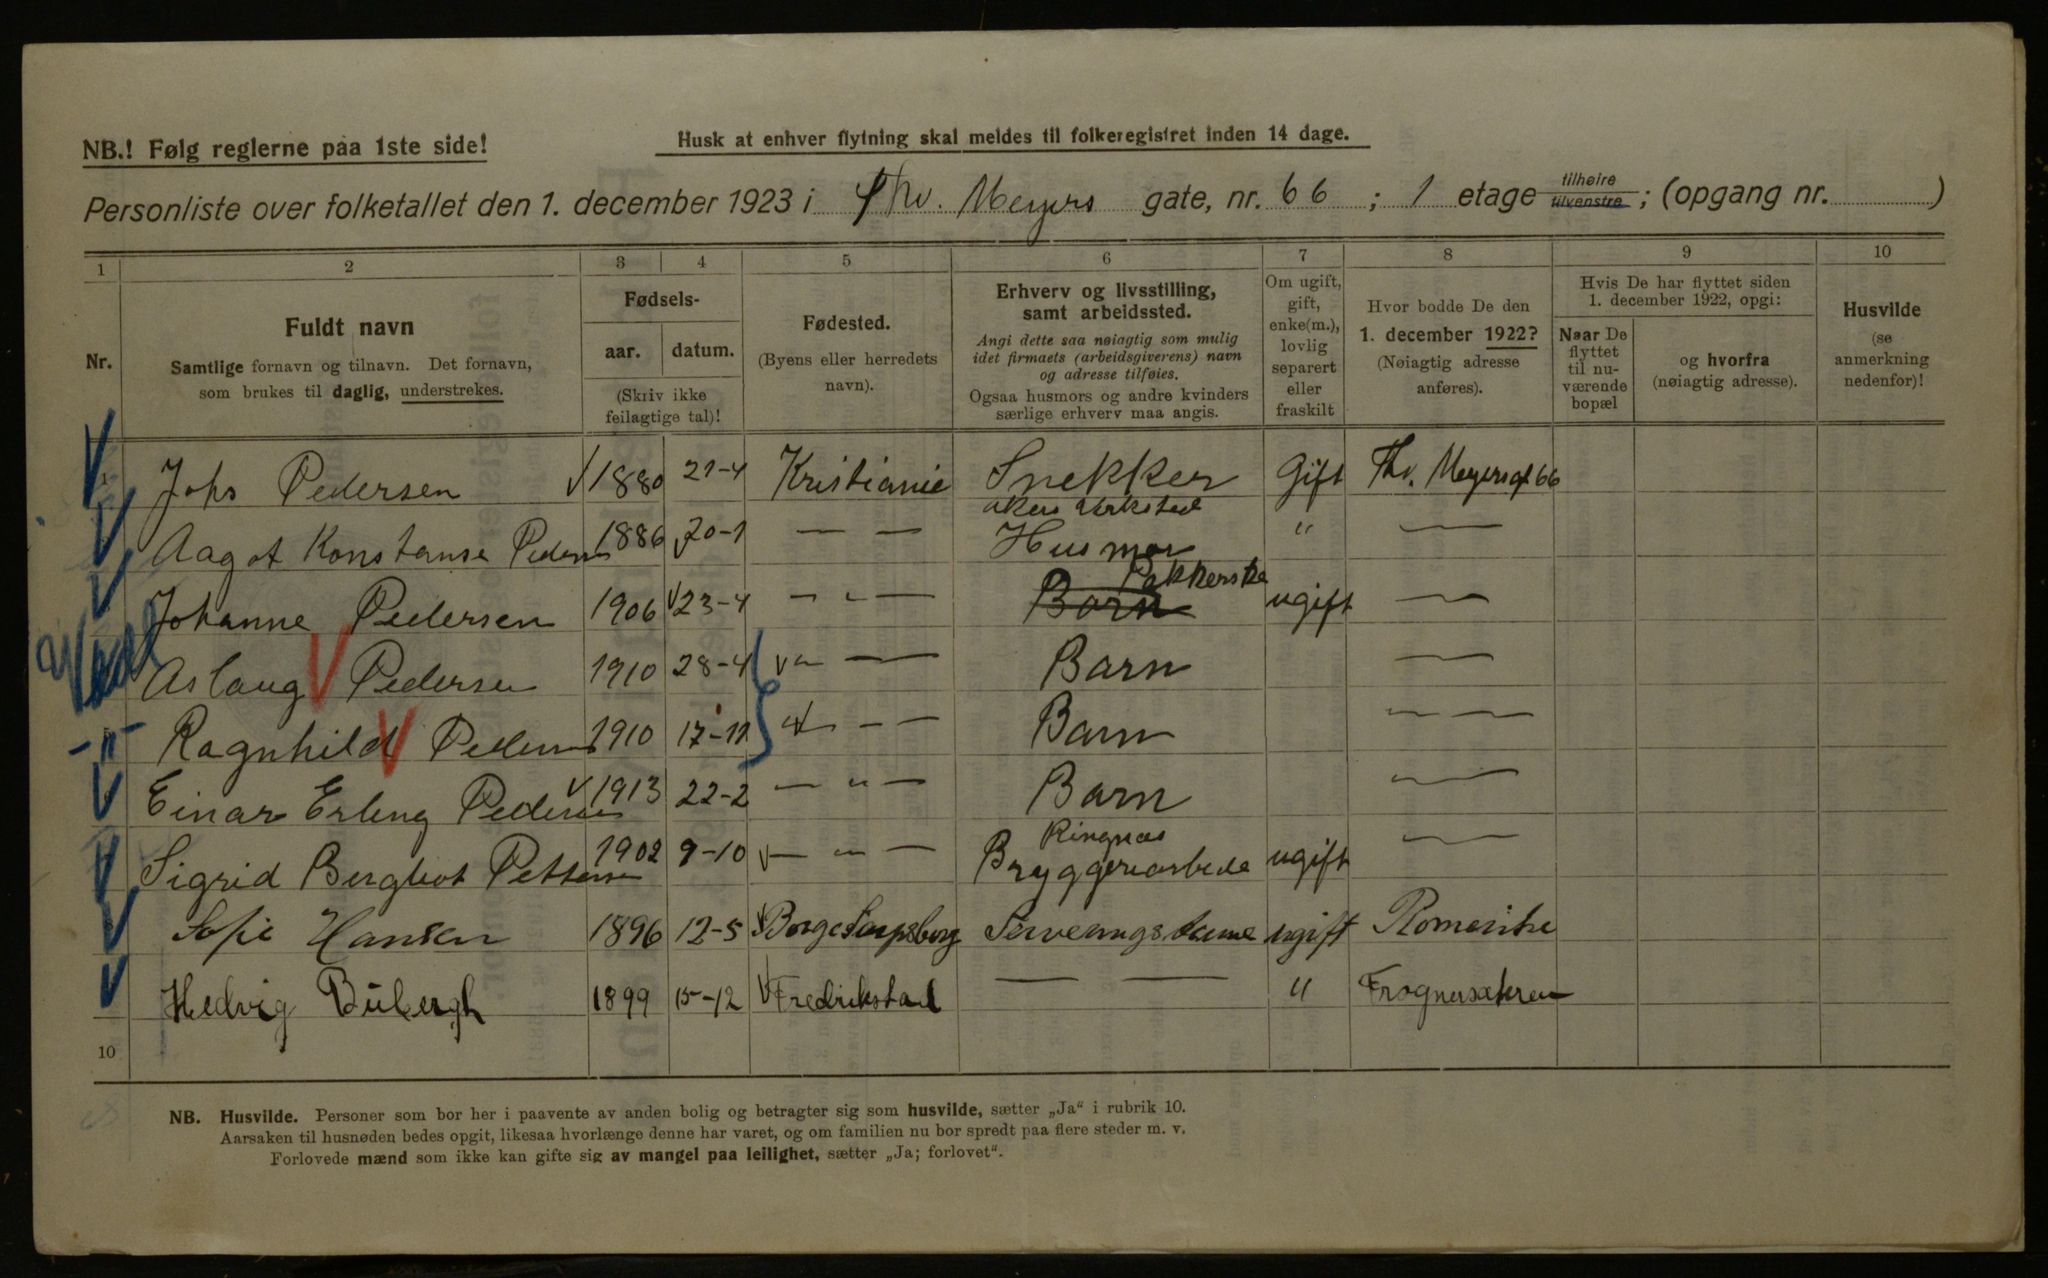 NB.! Følg reglerne paa 1ste side!
Husk at enhver flytning skal meldes til folkeregistret inden 14 dage.
Personliste over folketallet den 1. december 1923 i Thv. Meyers gate, nr. 66 ; 1 etage tilhøire tilvenstre ; (opgang nr. )
1 2 3 4 5 6 7 8 9 10
Nr.
Fuldt navn
Samtlige fornavn og tilnavn. Det fornavn,
som brukes til daglig, understrekes.
Fødsels-
aar. datum.
(Skriv ikke
feilagtige tal)!
Fødested.
(Byens eller herredets
navn).
Erhverv og livsstilling,
samt arbeidssted.
Angi dette saa nøiagtig som mulig
idet firmaets (arbeidsgiverens) navn
og adresse tilføies.
Ogsaa husmors og andre kvinders
særlige erhverv maa angis.
Om ugift,
gift,
enke(m.),
lovlig
separert
eller
fraskilt
Hvor bodde De den
1. december 1922?
(Nøiagtig adresse
anføres).
Hvis De har flyttet siden
1. december 1922, opgi:
Naar De
flyttet
til nu-
værende
bopæl
og hvorfra
(nøiagtig adresse).
Husvilde
(se
anmerkning
nedenfor)!
Johs Pedersen 1880 21-4 Kristiania Snekker Gift Thv. Meyersgt 66
akers Verksted
Aagot Konstanse Pedersen 1886 20-1 — — Husmor " —
Pakkerske
Johanne Pedersen 1906 23-4 — " — Barn ugift —
Aslaug Pedersen 1910 28-4 " — Barn —
Ragnhild Pedersen 1910 17-11 " — — Barn — —
-"-
Einar Erling Pedersen 1913 22-2 — " — Barn —
Ringnæs
Sigrid Bergliot Pettersen 1902 9-10 — " — Bryggeriarbeide ugift —
Sofie Hansen 1896 12-5 Borge Sarpsborg Serveringsdame ugift Romerike
Hedvig Bübergh 1899 15-12 Fredrikstad — — " Frognersæteren
10
NB. Husvilde. Personer som bor her i paavente av anden bolig og betragter sig som husvilde, sætter „Ja“ i rubrik 10.
Aarsaken til husnøden bedes opgit, likesaa hvorlænge denne har varet, og om familien nu bor spredt paa flere steder m. v.
Forlovede mænd som ikke kan gifte sig av mangel paa leilighet, sætter „Ja; forlovet“.